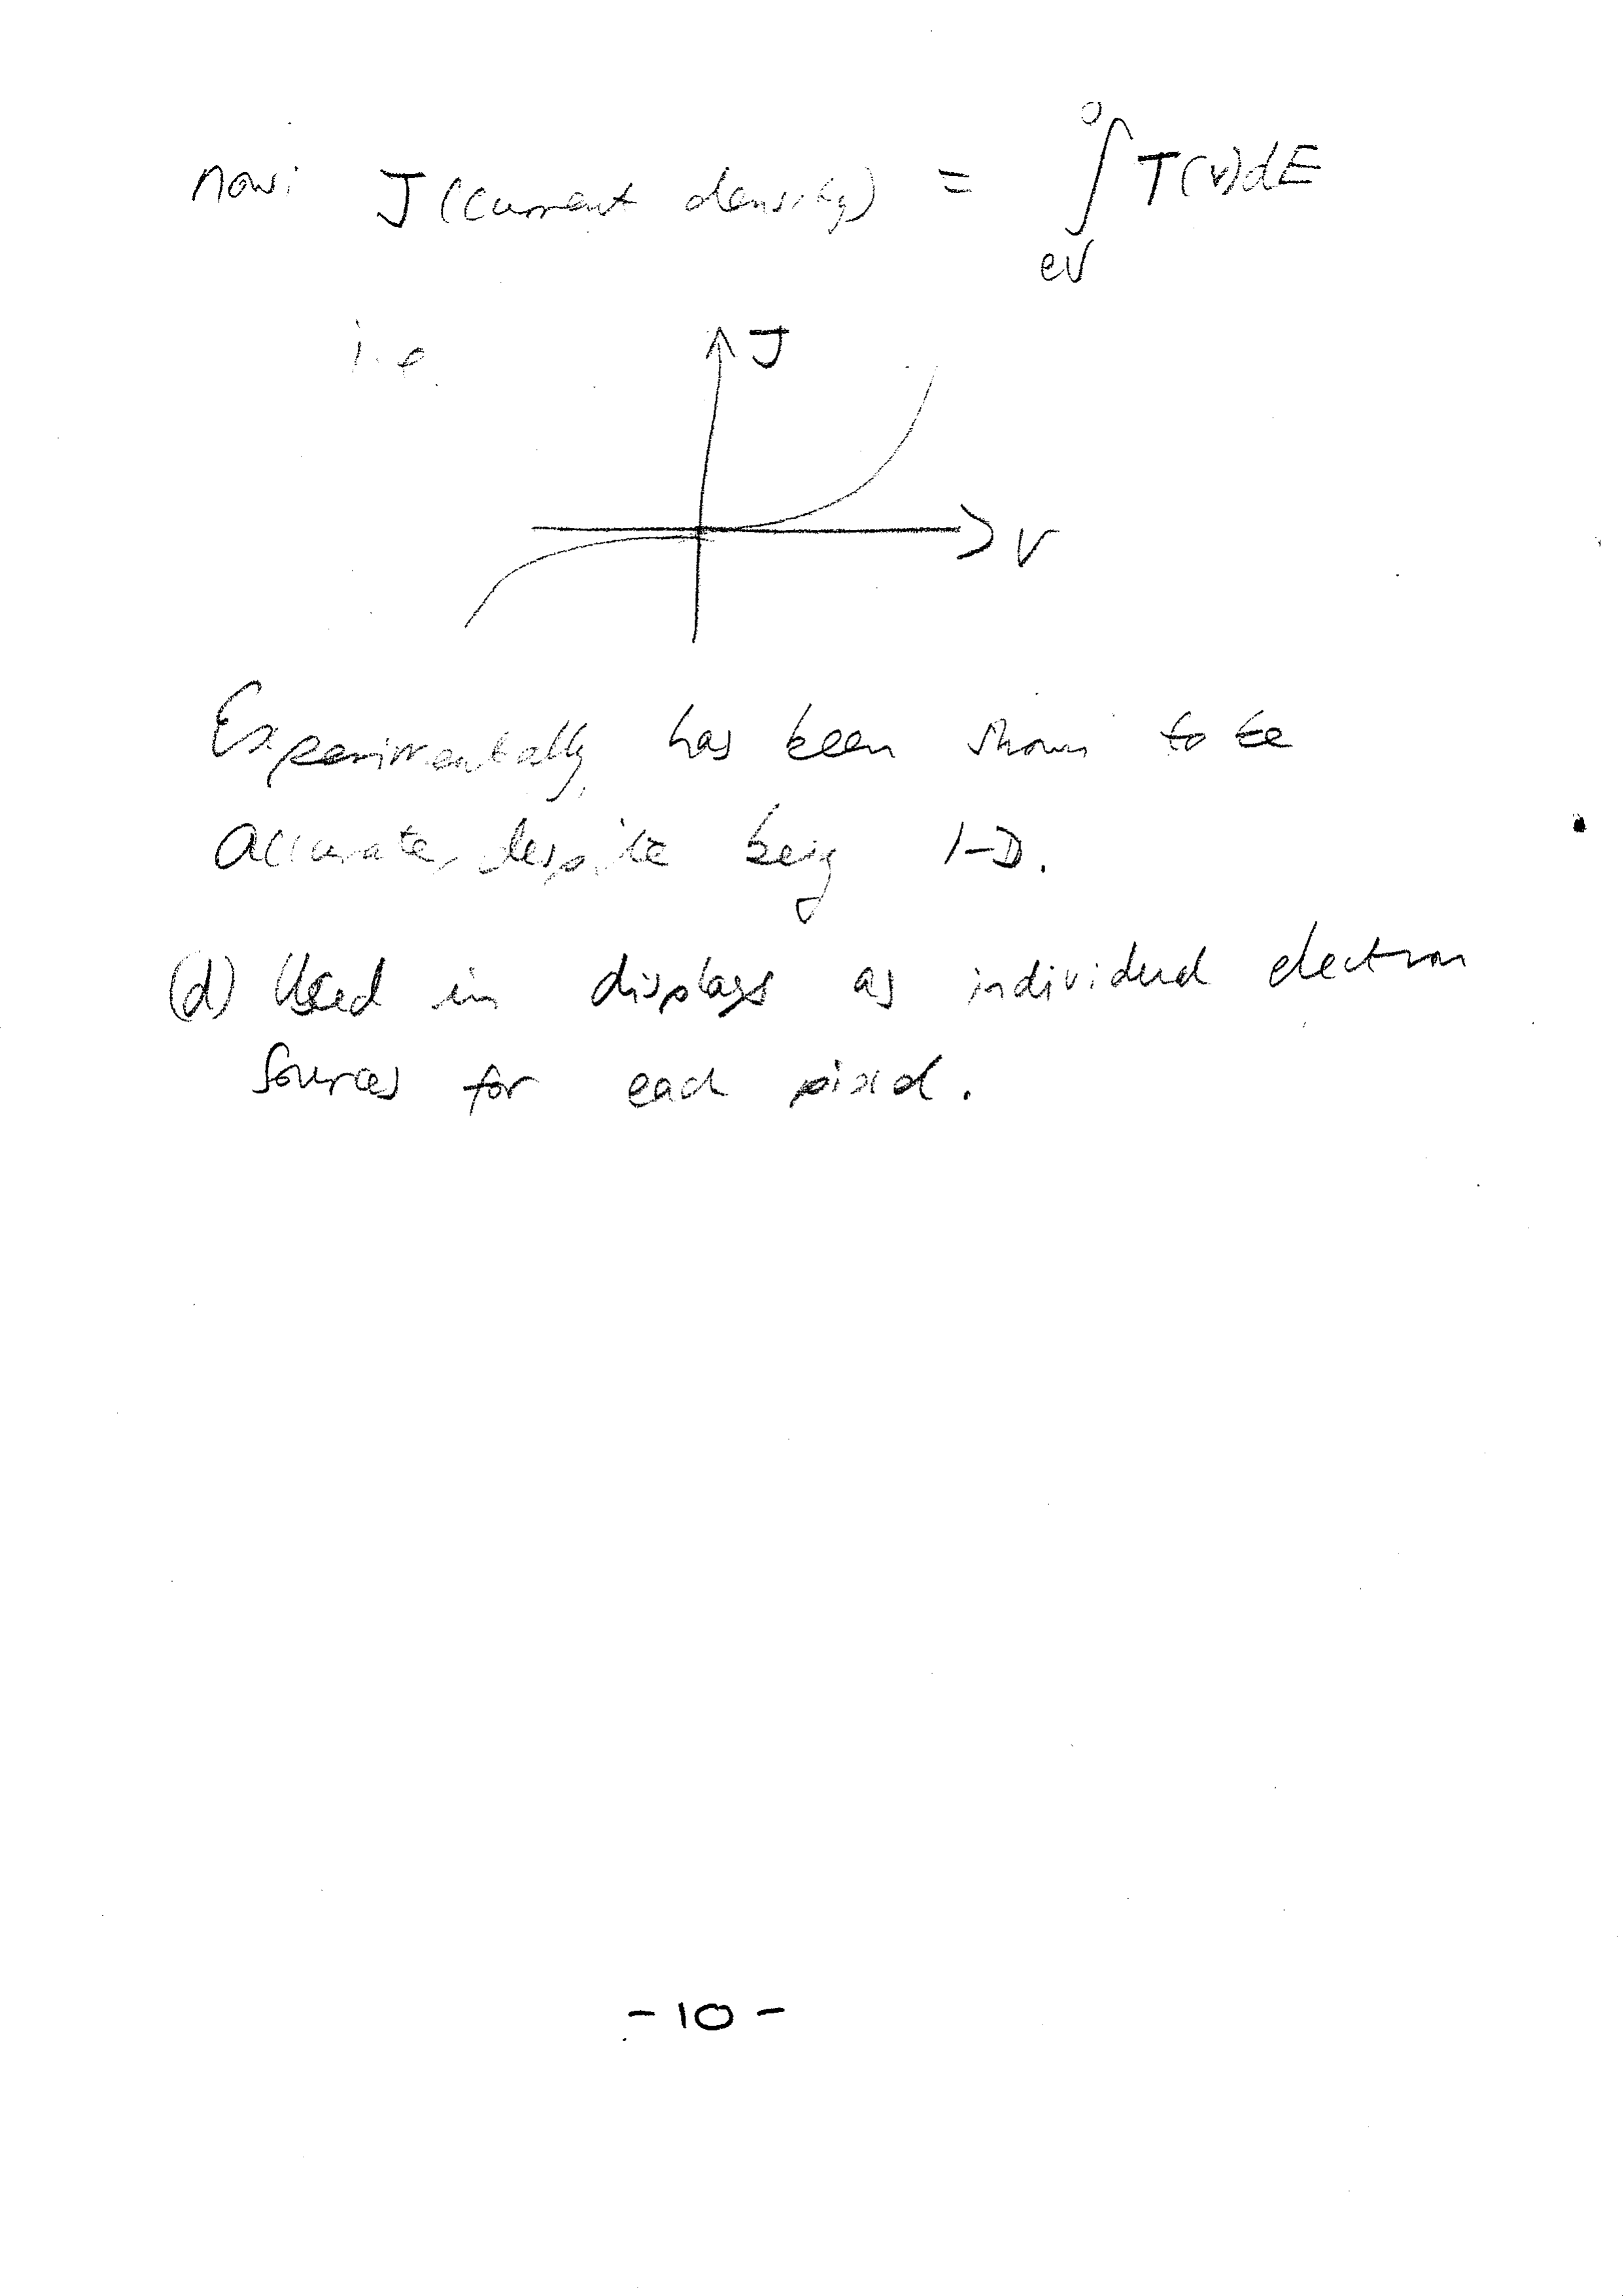 now: J (current density) = ∫ T(v)dE
0
eV
i.e.
J
V
Experimentally has been shown to be
accurate, despite being 1-D.
(d) Used in displays as individual electron
sources for each pixel.
- 10 -